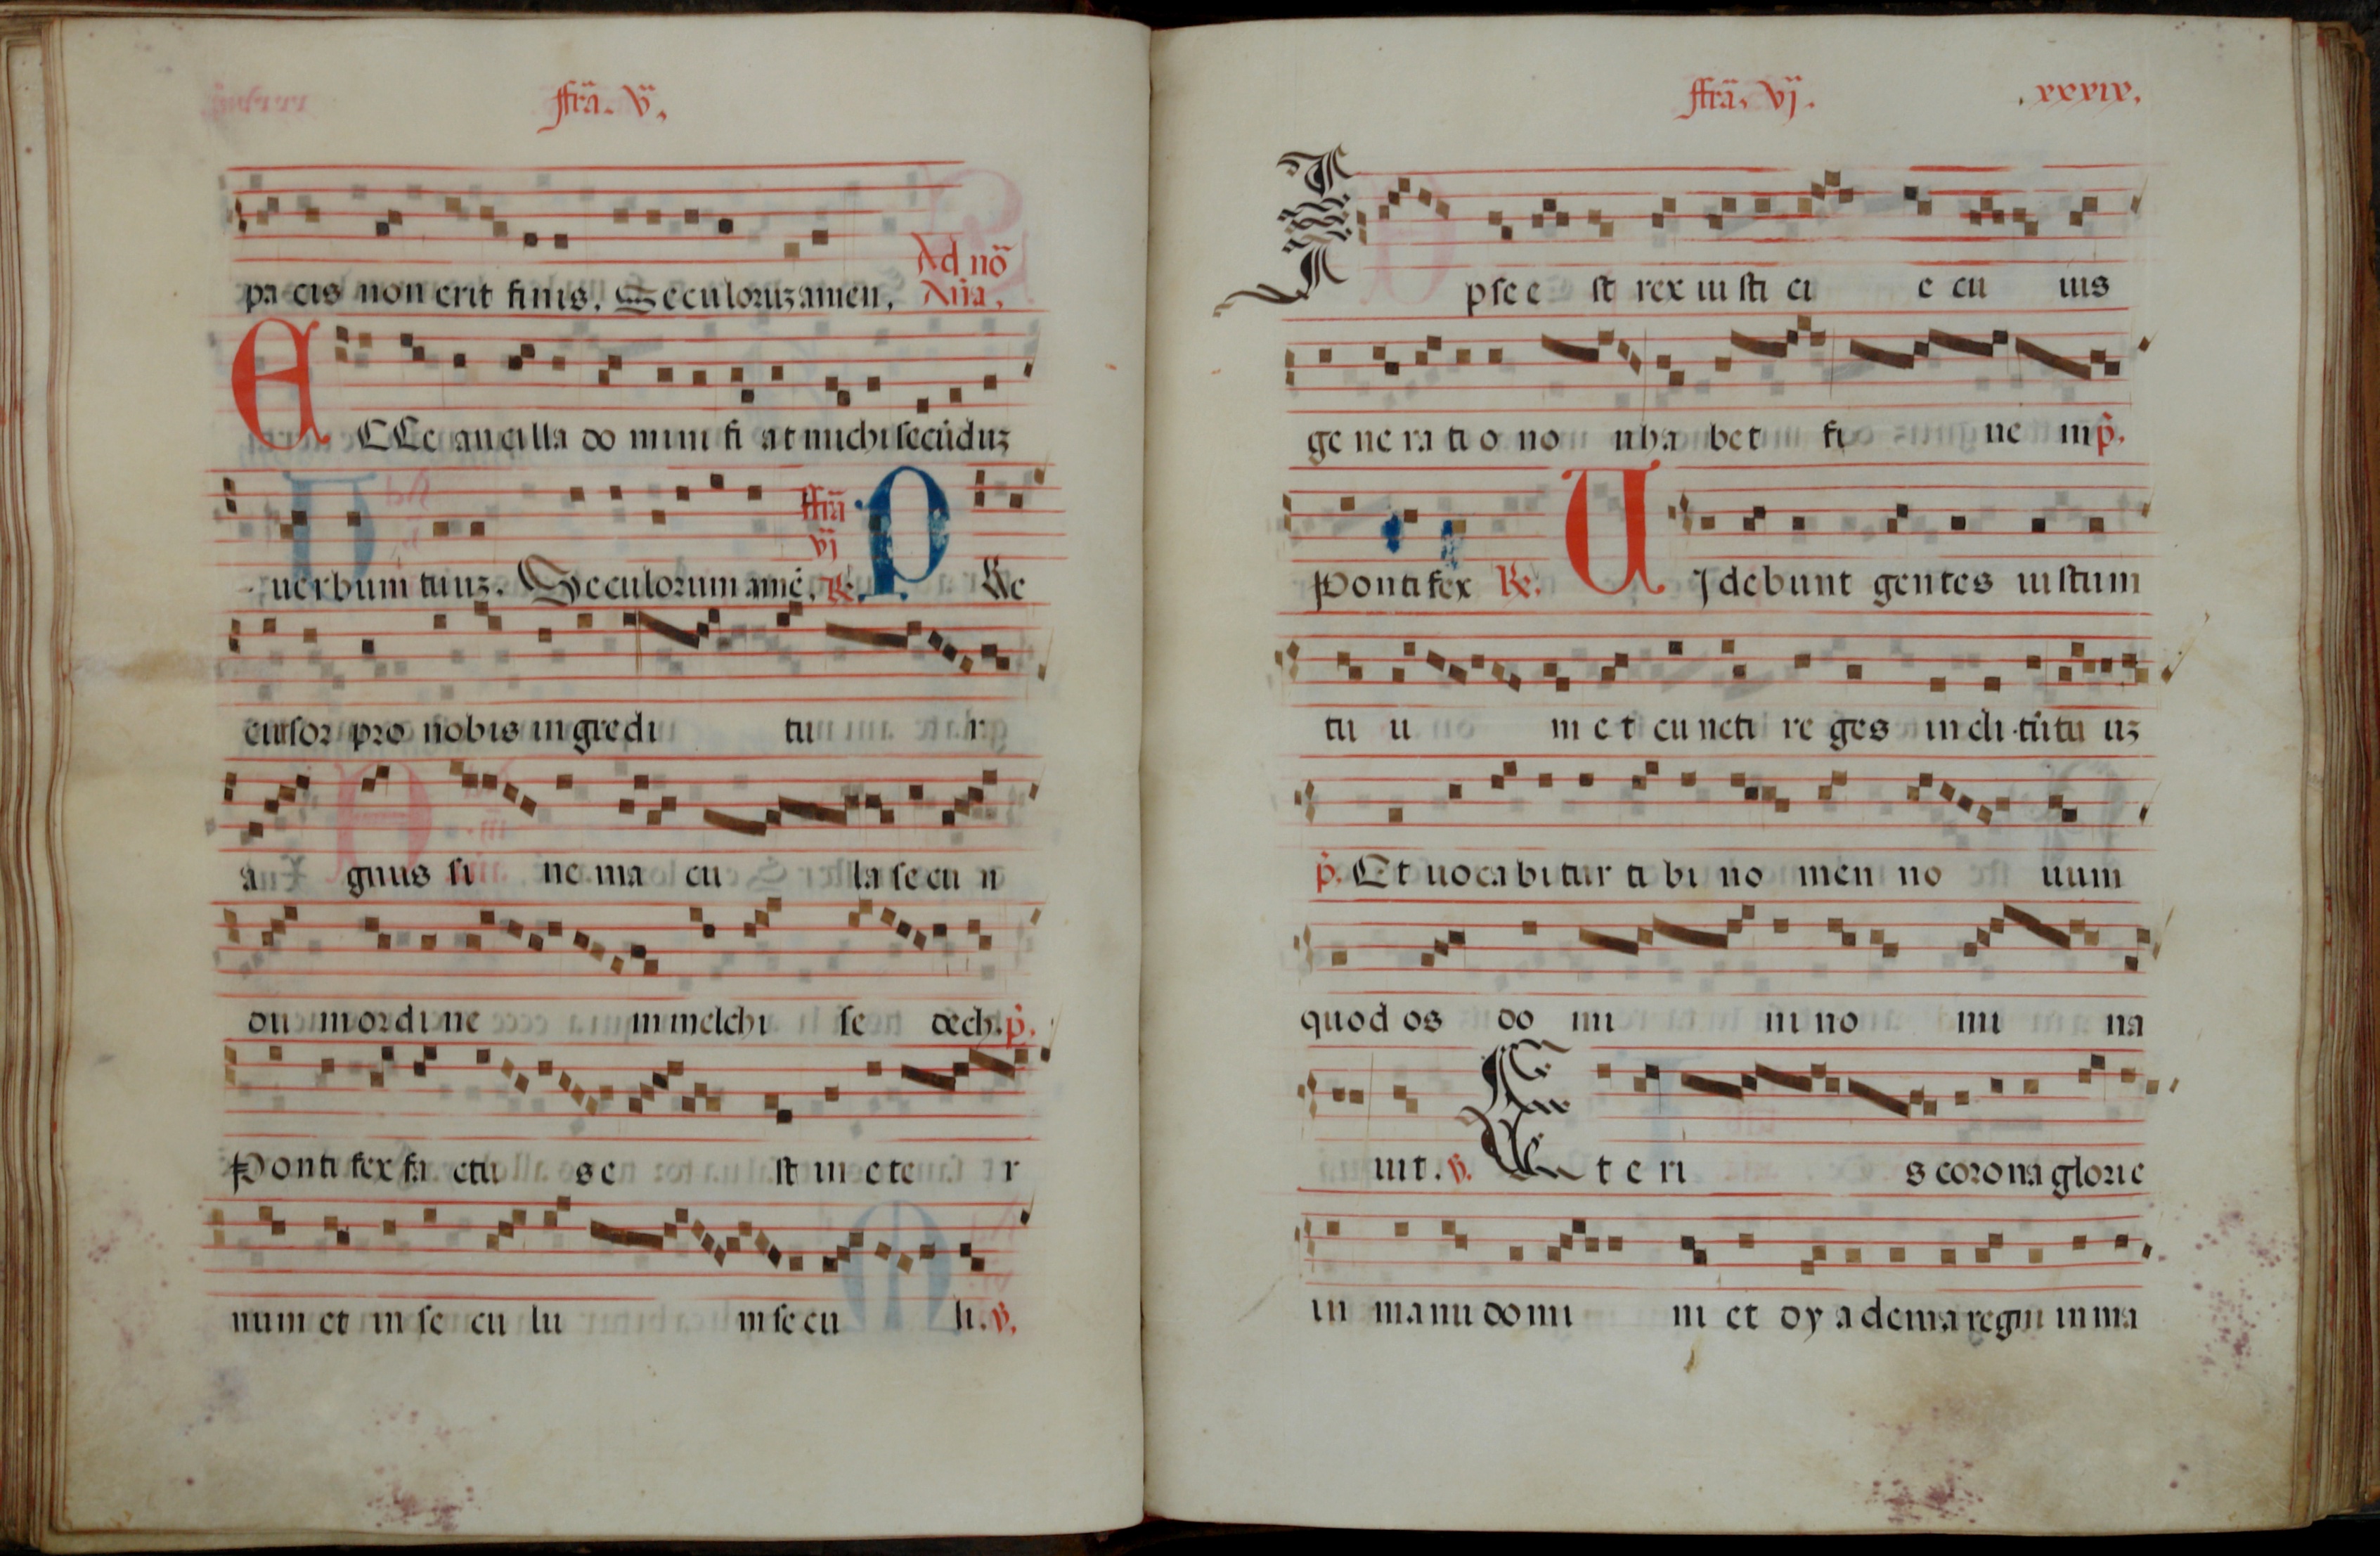 ffrã. v̈.
pa cis non erit finis. Seculoruʒ amen. Ad nõ
Añа.
ECCe ancilla do mini fi at michi secũduʒ
uerbum tuuʒ. Seculorum amẽ. ffrã vj ꝶ. PRe
cursor pro nobis in gredi tu r
a gnus si ne ma cu la se cu n
du m ordi ne m melchi se dech. p̃.
Ponti fex fa ctu s e st in e te r
num et in se cu lu m se cu li. ℣.
ffrã. vj. xxxix.
Ipse e st rex iu sti ci e cu ius
ge ne ra ti o no n ha bet fi ne m p̃.
Ponti fex ꝶ. UJdebunt gentes iustum
tu u m e t cu ncti re ges in cli tũ tu uʒ
p̃. Et uocabitur ti bi no men no uum
quod os do mi ni no mi na
uit. ℣. Et e ri s corona glorie
in manu domi ni et dy a dema regni in ma